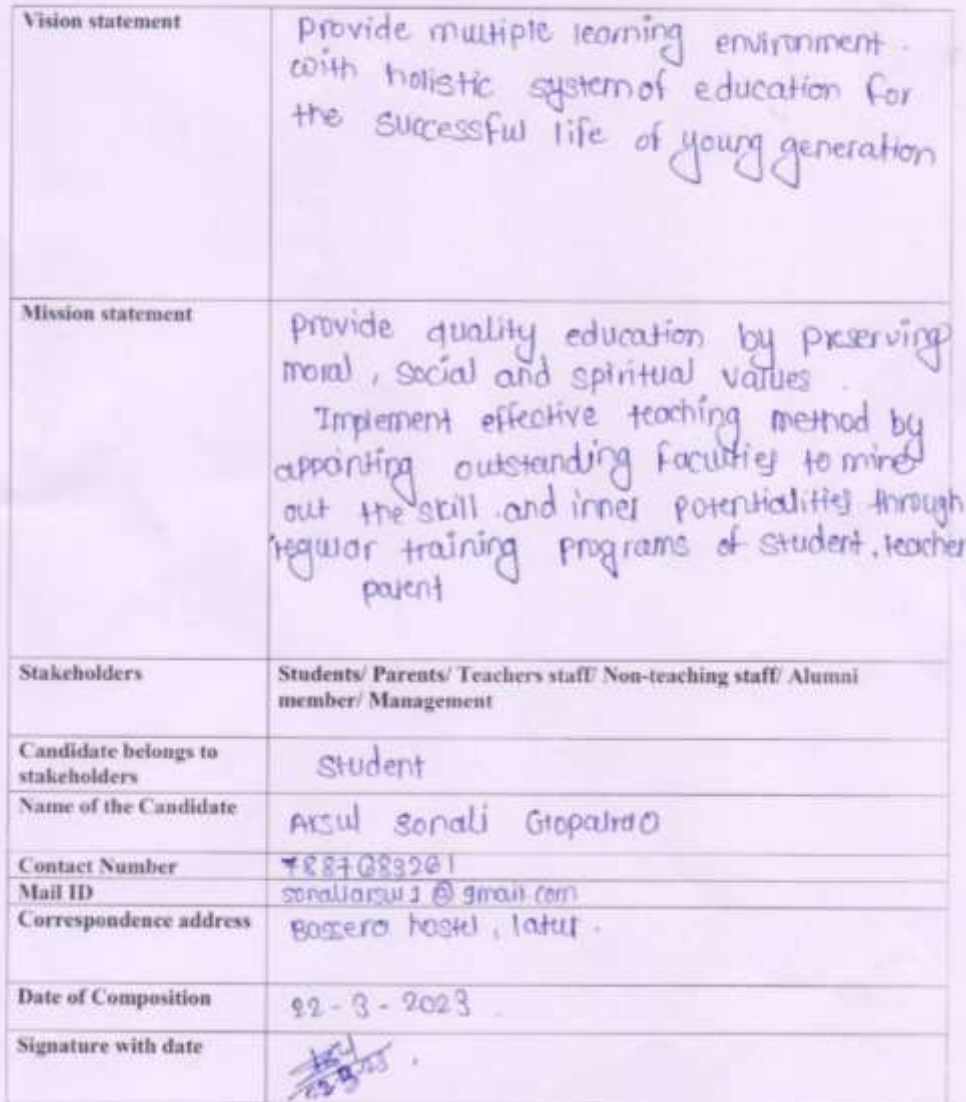 Vision statement
provide multiple learning environment.
with holistic system of education for
the successful life of young generation
Mission statement
provide quality education by preserving
moral, social and spiritual values.
Implement effective teaching method by
appointing outstanding faculties to mine
out the skill and inner potentialities through
regular training programs of student, teacher
parent
Stakeholders
Students/ Parents/ Teachers staff/ Non-teaching staff/ Alumni
member/ Management
Candidate belongs to
stakeholders
Student
Name of the Candidate
Arsul Sonali Gopalrao
Contact Number
Mail ID
@gmail.com
Correspondence address
hostel, latur.
Date of Composition
22-3-2023.
Signature with date